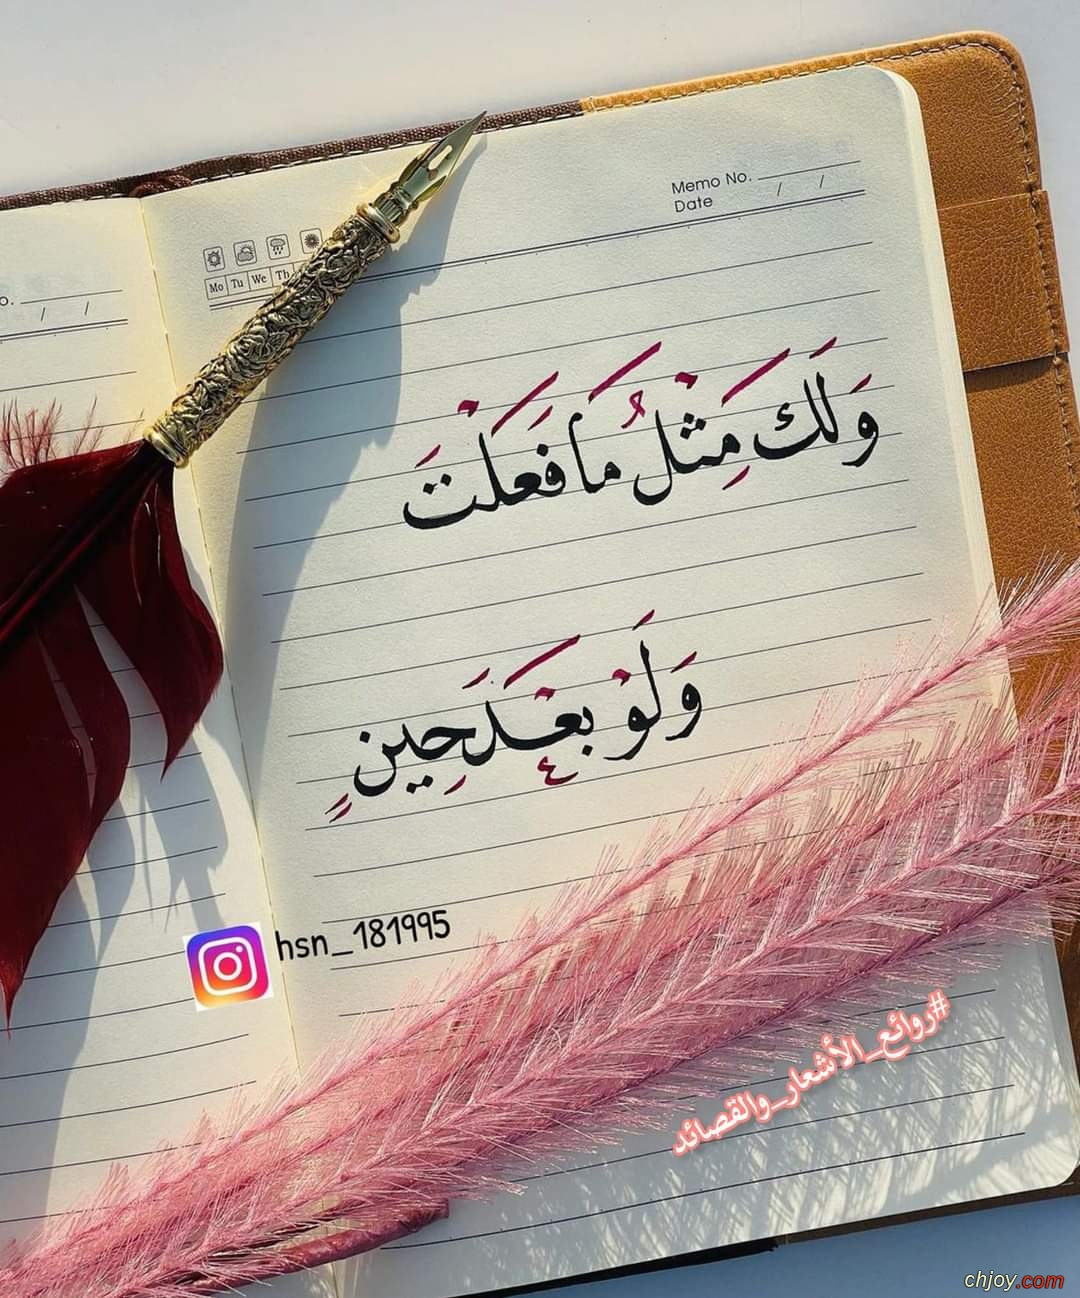 Memo No.
Date / /
o.
/ /
Mo Tu We Th
وَلَكَ مِثْلُ مَا فَعَلْتَ
وَلَوْ بَعْدَ حِينٍ
hsn_181995
#روائع_الأشعار_والقصائد
chjoy.com